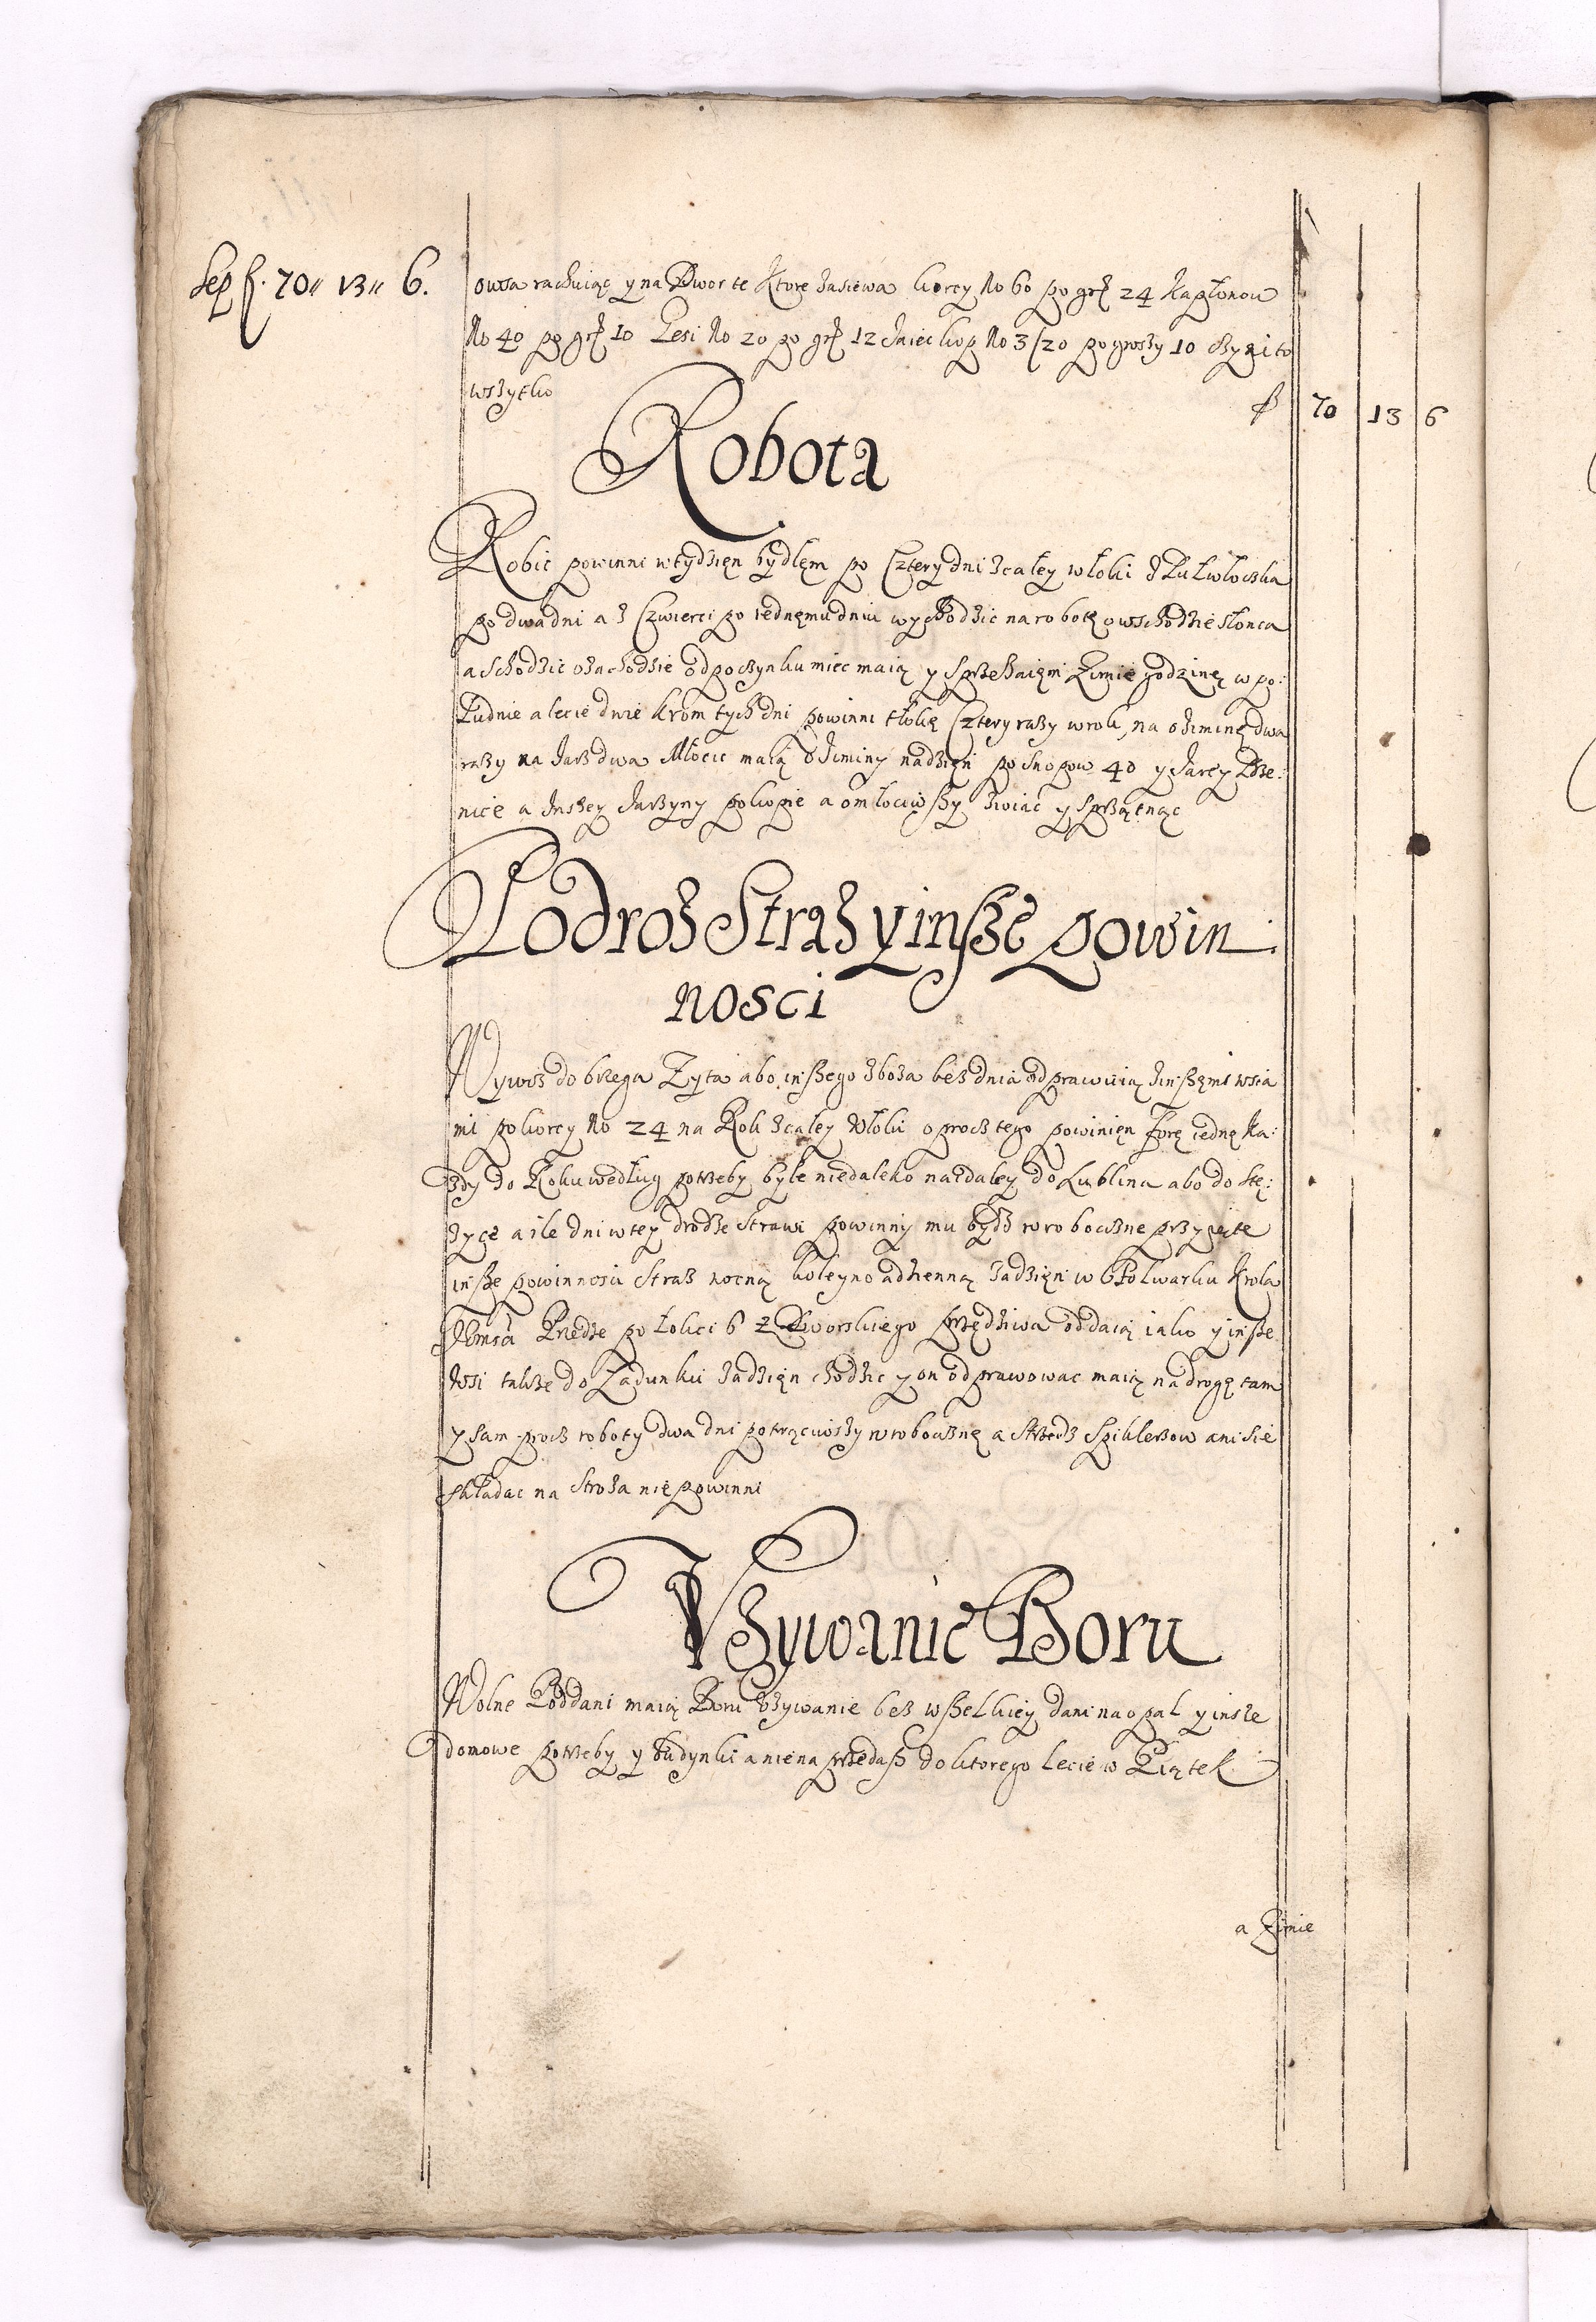 Sep f. 70 ,, 13 ,, 6.
owsa rachuiąc y na Dworce ktore zasiewa korcy No 60 po grß 24 kapłonow
No 40 po grß 10 Gesi No 20 po grß 12 Jaiec kop No 3/20 po groszy 10 czyni to
wszytko f 70 13 6
Robota
Robic powinni w tydzięn bydlęm po Cztery dni z całey włoki z Pułwłoczka
po dwa dni a z Czwierci po iednęmu dniu wychodzic na robotę o wschodzie słonca
a schodzic o zachodzie odpoczynku miec maią y sprzehaięmi Zimie godzinę w po:
łudnie a lecie dwie krom tych dni powinni tłokę Cztery razy w rok, na oziminę dwa
razy na Jarz dwa Młocic maią oziminy na dzięn po snopow 40 y Jarey Psze:
nice a Inszey Jarzyny po kopie a omłociwszy zwiac y sprzątnąc
Podroz Straz y insze powin:
nosci
Wywoz do brzega Zyta abo inszego zboza bez dnia odprawuią z inszęmi wsia
mi po korcy No 24 na Rok z całey Włoki oprocz tego powinięn forę iednę Ka:
zdy do Roku według potrzeby byle niedaleko nadaley do Lublina abo do Stę:
zyce a ile dni w tey drodze strawi powinny mu bydz w roboczne przyięte
insze powinnosci Straz nocną koleyno odzienną za dzięn w Folwarku Krola
Jemści Przedze po łokci 6 z Dworskiego przędziwa oddaią iako y insze
Wsi takze do Ładunku za dzięn chodzic y on odprawowac maią na drogę tam
y sam procz roboty dwa dni potrąciwszy w roboczną a Strzedz Spiklerzow ani sie
składac na stroza nie powinni
Vzywanie Boru
Wolne Poddani maią Boru Vzywanie bez wszelkiey dani na opał y insze
domowe potrzeby y budynki a nie na przedasz do ktorego lecie w Piątek
a Zimie